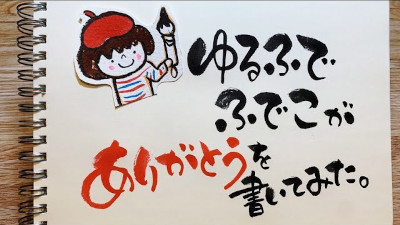 ゆるふで
ふでこが
ありがとうを
書いてみた。